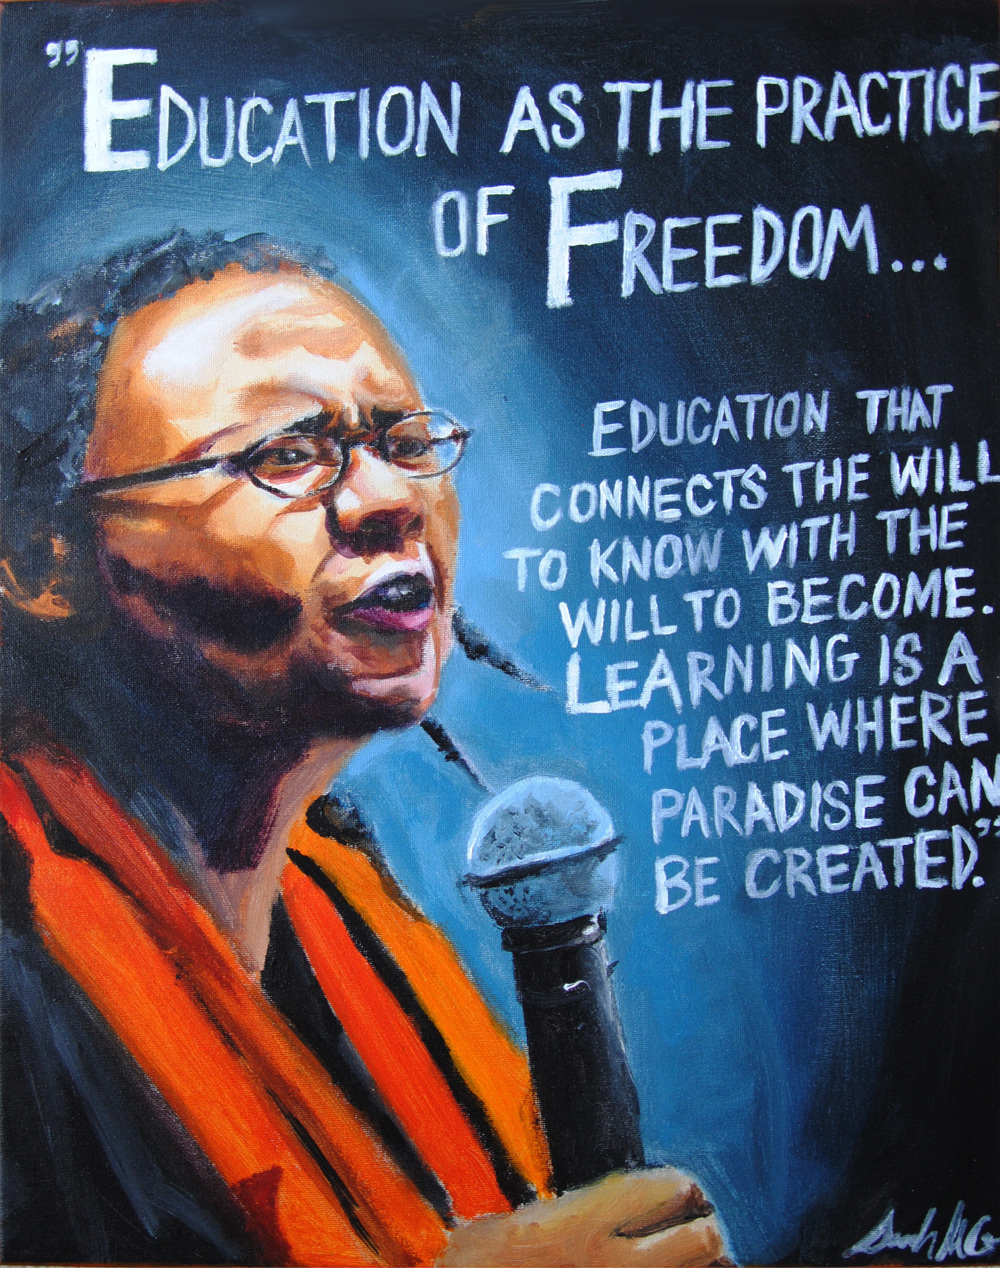 ”EDUCATION AS THE PRACTICE
OF FREEDOM...
EDUCATION THAT
CONNECTS THE WILL
TO KNOW WITH THE
WILL TO BECOME.
LEARNING IS A
PLACE WHERE
PARADISE CAN
BE CREATED.”